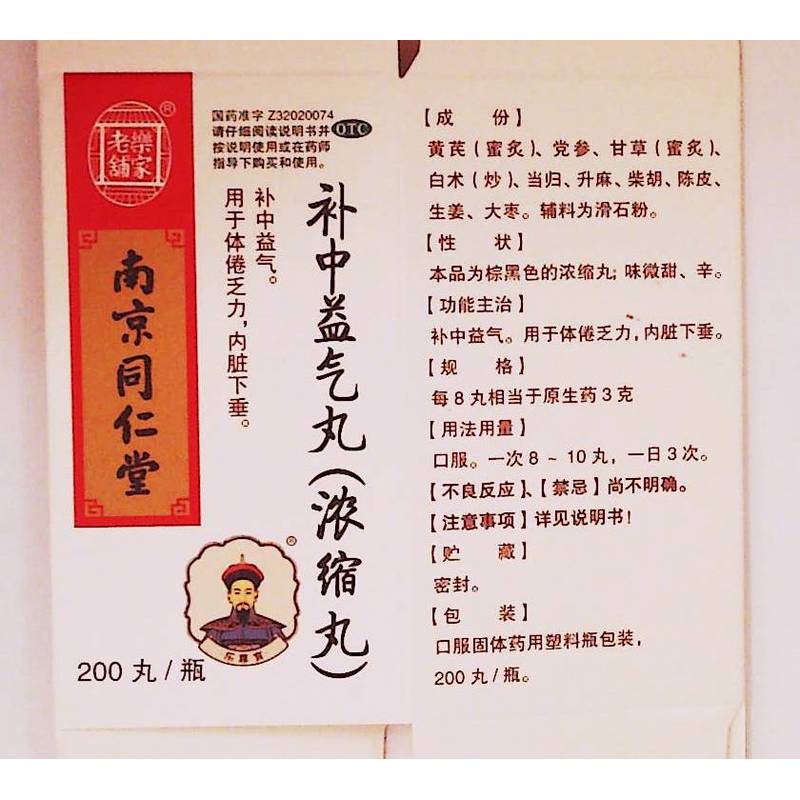 老舖
樂家
®
南京同仁堂
国药准字 Z32020074
请仔细阅读说明书并
按说明使用或在药师
指导下购买和使用。
OTC
补中益气丸(浓缩丸)
补中益气。
用于体倦乏力,内脏下垂。
®
200 丸/瓶
【成 份】
黄芪(蜜炙)、党参、甘草(蜜炙)、
白术(炒)、当归、升麻、柴胡、陈皮、
生姜、大枣。辅料为滑石粉。
【性 状】
本品为棕黑色的浓缩丸;味微甜、辛。
【功能主治】
补中益气。用于体倦乏力,内脏下垂。
【规 格】
每 8 丸相当于原生药 3 克
【用法用量】
口服。一次 8 ~ 10 丸,一日 3 次。
【不良反应】、【禁忌】尚不明确。
【注意事项】详见说明书!
【贮 藏】
密封。
【包 装】
口服固体药用塑料瓶包装,
200 丸/瓶。